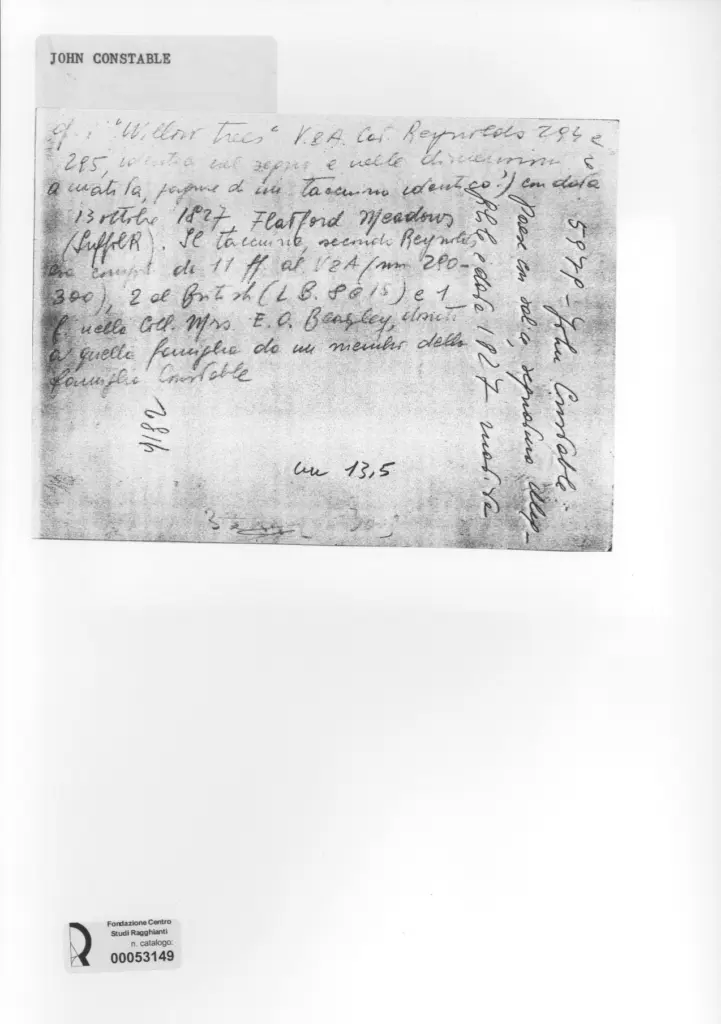 JOHN CONSTABLE
cf. i "Willow trees" V.&A. Cat. Reynolds 294 e
295, identici nel segno e nelle dimensioni
a matita, pagine di un taccuino identico!) con data
13 ottobre 1827 Flatford Meadows
(Suffolk). Il taccuino, secondo Reynolds,
di 11 ff. al V&A (nn 290-
300), 2 al British (L.B. 8 e 15) e 1
f. nella Coll. Mrs. E. O. Beazley,
a quella famiglia da un membro della
famiglia Constable
597P - John Constable
Paes con salici, segnatura
e data 1827 matita
cm 13,5
Fondazione Centro
Studi Ragghianti
n. catalogo:
00053149